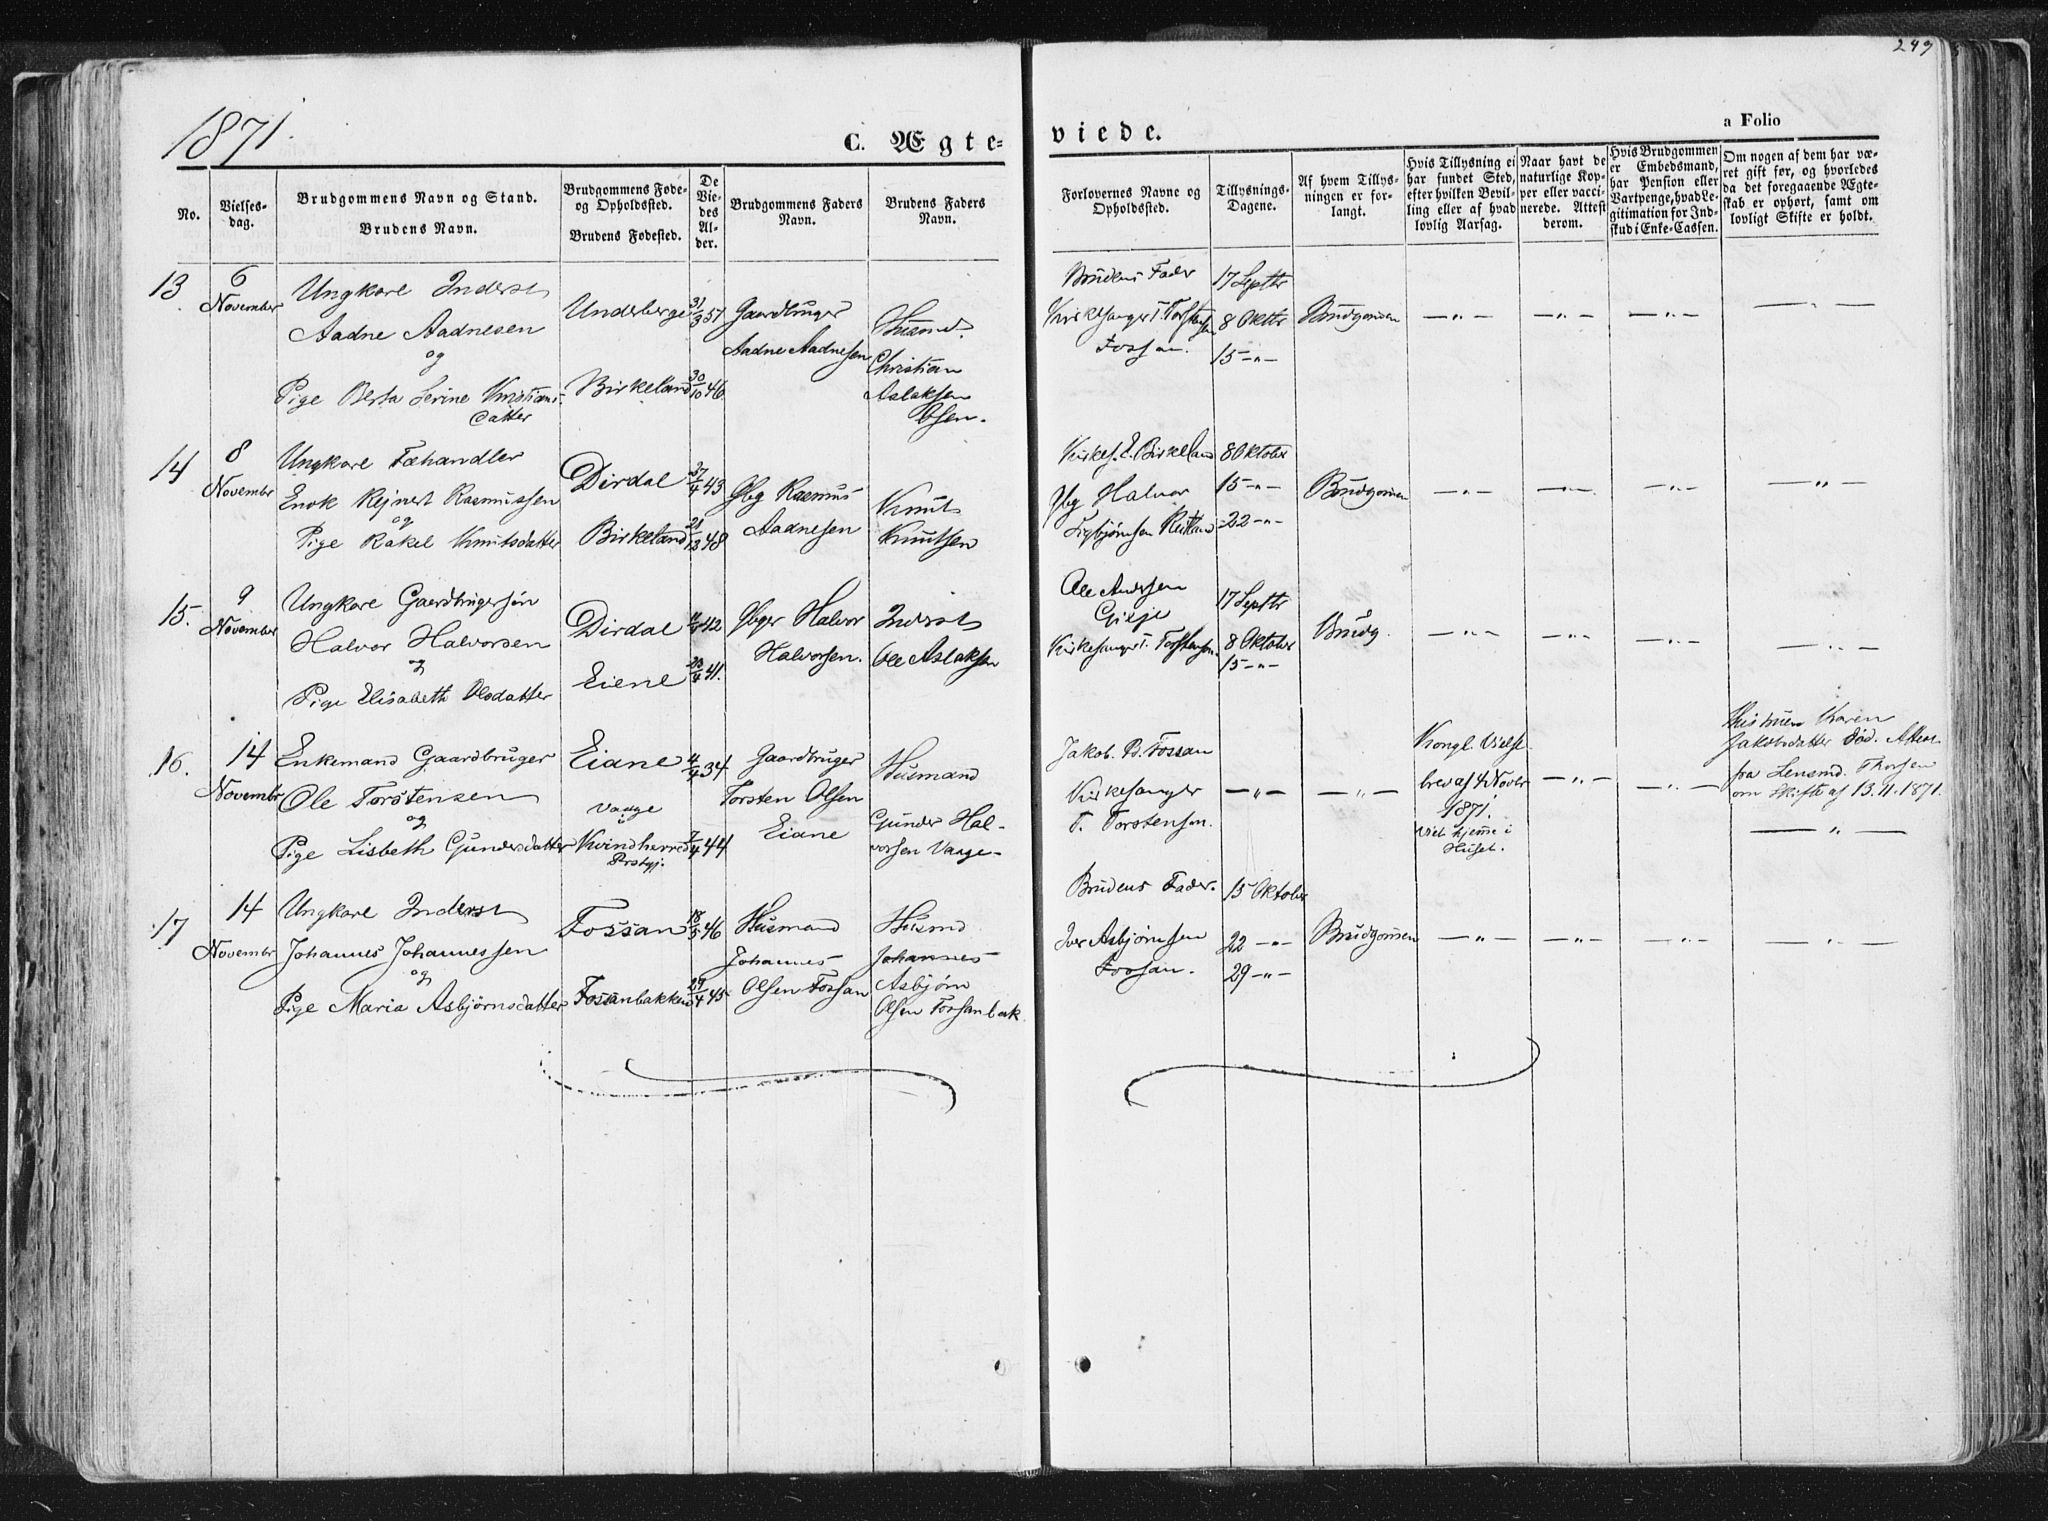 249
1871.
C. Ægte-
viede.
a Folio
No.
Vielses-
dag.
Brudgommens Navn og Stand.
Brudens Navn.
Brudgommens Føde-
og Opholdssted.
Brudens Fødested.
De
Vie-
des
Al-
der.
Brudgommens Faders
Navn.
Brudens Faders
Navn.
Forlovernes Navne og
Opholdssted.
Tillysnings-
Dagene.
Af hvem Tillys-
ningen er for-
langt.
Hvis Tillysning ei
har fundet Sted,
efter hvilken Bevil-
ling eller af hvad
lovlig Aarsag.
Naar havt de
naturlige Kop-
per eller vacci-
nerede. Attest
derom.
Hvis Brudgommen
er Embedsmand,
har Pension eller
Vartpenge, hvad Le-
gitimation for Ind-
skud i Enke-Cassen.
Om nogen af dem har væ-
ret gift før, og hvorledes
da det foregaaende Ægte-
skab er ophørt, samt om
lovligt Skifte er holdt.
13
6
November
Ungkarl Inderst
Aadne Aadnesen
og
Pige Berta Serine Kristians-
datter
Underberge
Birkeland
31/3 51
30/10 46
Gaardbruger
Aadne Aadnesen
Husmd.
Christian
Aslaksen
Brudens Fader
Kirkesanger T. Torstensen
Fossan.
17 Septbr
8 Oktbr
15 -"-
Brudgommen
-"- -"- -"- -"-
14
8
Novembr
Ungkarl Fæhandler
Enok Rejnert Rasmussen
og
Pige Rakel Knutsdatter
Dirdal
Birkeland
27/4 43
21/12 48
Gbg Rasmus
Aadnesen
Knut
Knutsen
Kirkes. E. Birkeland
Gbg Halvor
Sigbjørnsen
8 Oktober
15 -"-
22 -"-
Brudgommen
-"- -"- -"- -"-
15.
9
November
Ungkarl Gaardbrugersøn
Halvor Halvorsen
og
Pige Elisabeth Olsdatter
Dirdal
Eiene
42
41.
Gbger Halvor
Halvorsen.
Inderst
Ole Aslaksen
Ole Andersen
Gilje
Kirkesanger T. Torstensen.
17 Septbr
8 Oktober
15 -"-
Brudg.
-"- -"- -"- -"-
16.
14
Novembr
Enkemand Gaardbruger
Ole Torstensen
og
Pige Lisbeth Gundersdatter
Eiane
Vaage
i
Kvindherred
Prstgj.
4/4 34
7/4 44
Gaardbruger
Torsten Olsen
Eiane
Husmand
Gunder Hal-
vorsen Vaage-
Jakob B. Fossan
Kirkesanger
T. Torstensen.
-"- -"-
Kongl. Vielse
brev af 4 Novbr
1871.
Viet hjemme i
Huset.
-"- -"-
Hustruen Karen
Jakobsdatter død. Attest
fra Lensmd. Thorsen
om Skifte af 13.11.1871.
-"-
17
14
Novembr
Ungkarl Inderst
Johannes Johannessen
og
Pige Maria Asbjørnsdatter
Fossan
Fossanbakken
18/5 46
29/4 45
Husmand
Johannes
Olsen Fossan
Husmd
Johannes
Asbjørn
Olsen Fossanbak
Brudens Fader.
Iver Asbjørnsen
Fossan.
15 Oktober
22 -"-
29 -"-
Brudgommen
-"- -"- -"- -"-